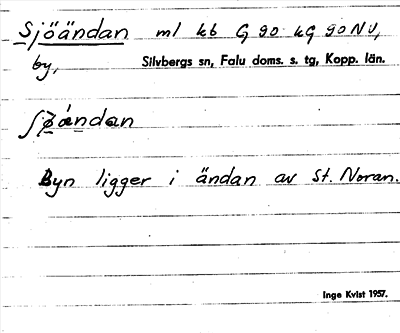 Sjöändan ml kb G 90 kG 90 NV,
by, Silvbergs sn, Falu doms. s. tg, Kopp. län.
ʃö̀ándan
Byn ligger i ändan av St. Noran.
Inge Kvist 1957.